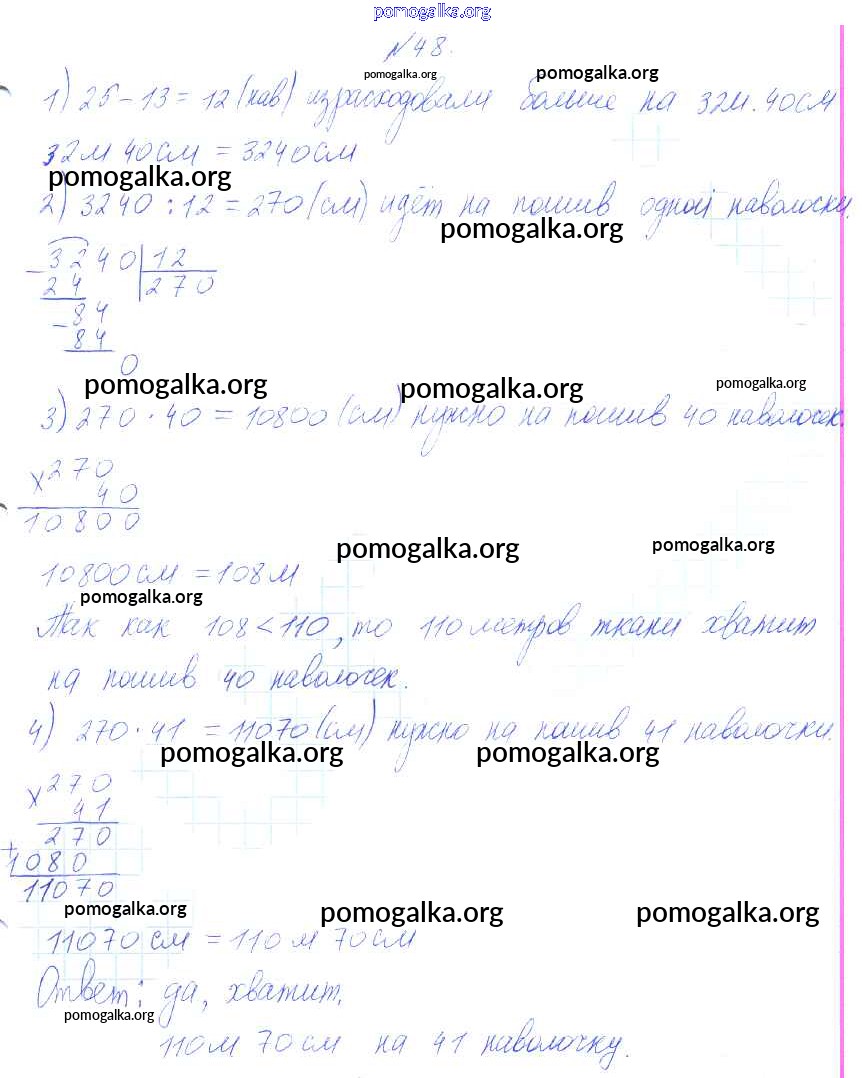 pomogalka.org
№48.
pomogalka.org pomogalka.org
1) 25 - 13 = 12 (нав) израсходовали больше на 32м. 40см
32м 40см = 3240см
pomogalka.org
2) 3240 : 12 = 270 (см) идёт на пошив одной наволочки.
pomogalka.org
- 3240 | 12
24 | 270
- 84
84
0
pomogalka.org pomogalka.org pomogalka.org
3) 270 · 40 = 10800 (см) нужно на пошив 40 наволочек.
х 270
40
10800
pomogalka.org pomogalka.org
10800см = 108м
pomogalka.org
Так как 108 < 110, то 110 метров ткани хватит
на пошив 40 наволочек.
4) 270 · 41 = 11070 (см) нужно на пошив 41 наволочки.
pomogalka.org pomogalka.org
х 270
41
270
+
1080
11070
pomogalka.org pomogalka.org pomogalka.org
11070 см = 110 м 70 см
Ответ: да, хватит,
pomogalka.org
110м 70 см на 41 наволочку.